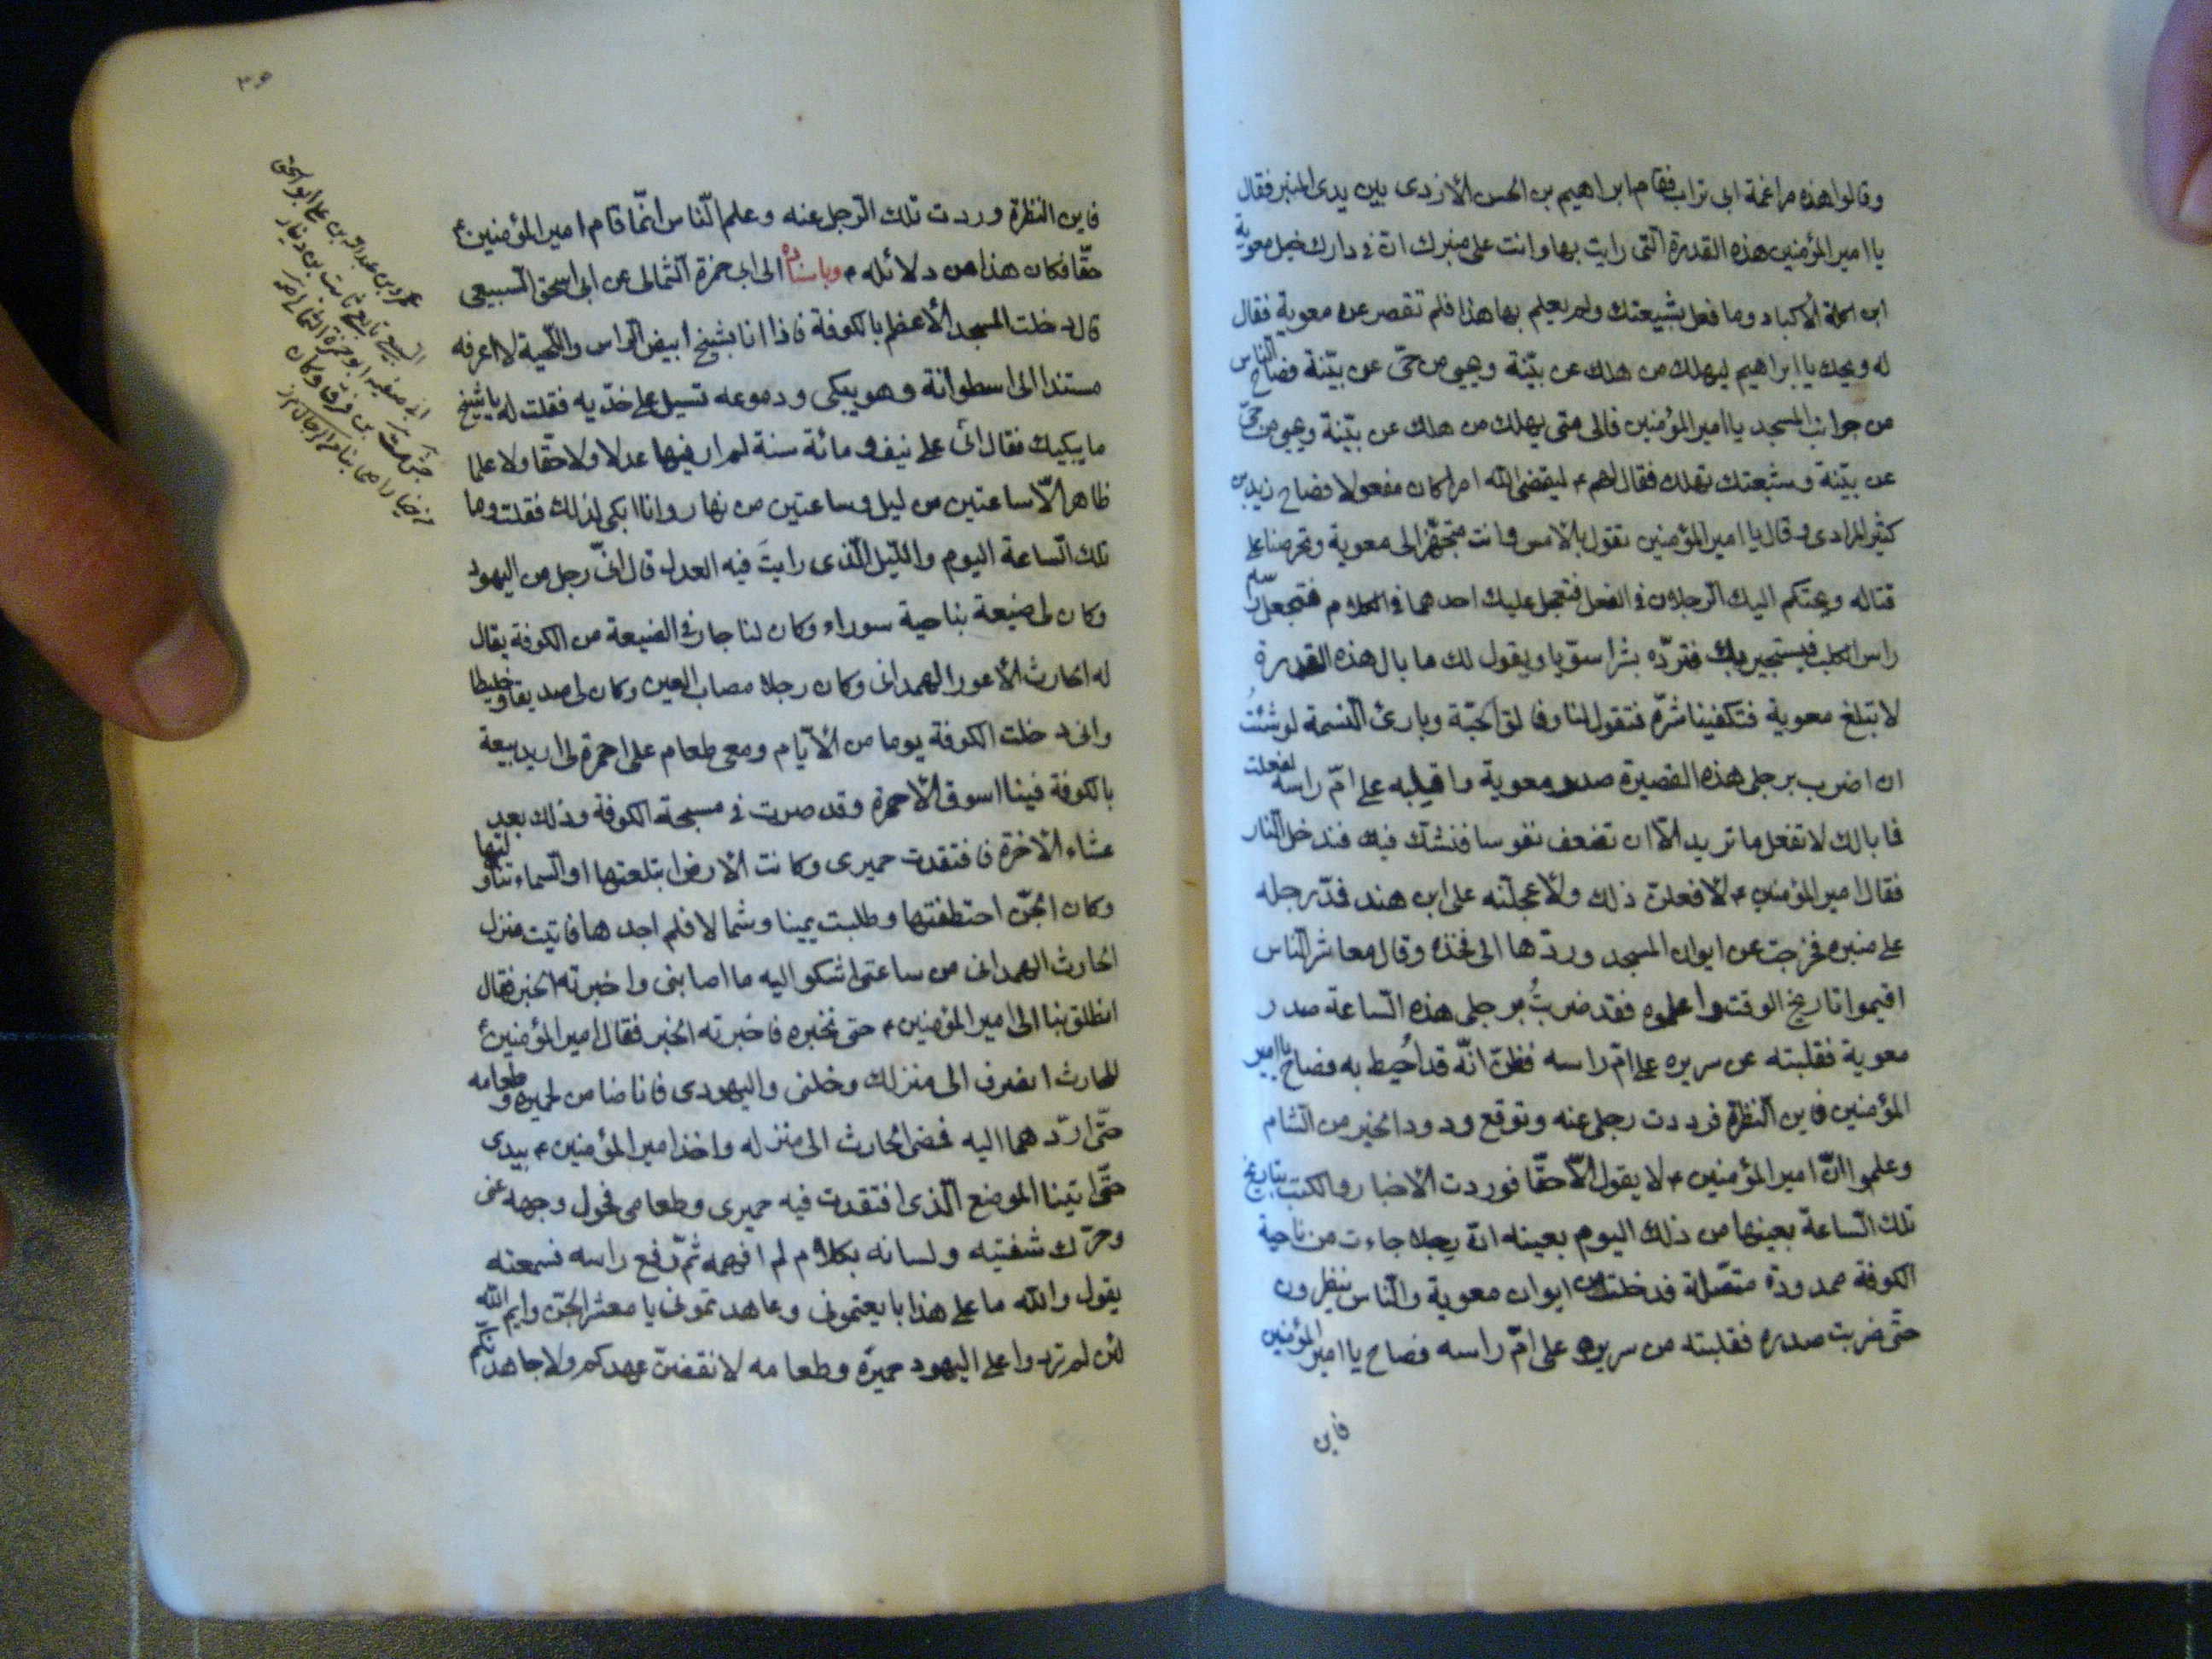 وقالوا هذه مراغمة ابى تراب فقام ابراهيم بن الحسن الأزدى بين يدى المنبر فقال
يا امير المؤمنين هذه القدرة التى رايت بها وانت على منبرك انّ فى دارك خيل معوية
ابن اكلة الأكباد وما فعل بشيعتك ولم يعلم بها هذا فلم تقصر عن معوية فقال
له ويحك يا ابراهيم ليهلك من هلك عن بيّنة ويحيى من حىّ عن بيّنة فصاح الناس
من جوانب المسجد يا امير المؤمنين فالى متى يهلك من هلك عن بيّنة ويحيى من حىّ
عن بيّنة وشيعتك تهلك فقال لهم ع ليقضى الله امرا كان مفعولا فصاح زيد بن
كثير المرادى وقال يا امير المؤمنين تقول بالأمس وانت متجهّز الى معوية وتحرضنا على
قتاله ويحتكم اليك الرجلان فى الفعل فتعجل عليك احدهما فى الكلام فتجعل راسه
راس الكلب فيستجير بك فتردّه بشرا سويّا ويقول لك ما بال هذه القدرة
لا تبلغ معوية فتكفينا شرّه فتقول لنا وفالق الحبّة وبارئ النسمة لو شئتُ
ان اضرب برجلى هذه القصيرة صدر معوية واقلبه على امّ راسه لفعلت
فما بالك لا تفعل ما تريد الّا ان تضعف نفوسنا فنشكّ فيك فندخل النار
فقال امير المؤمنين ع لأفعلنّ ذلك ولأعجلنّه على ابن هند فمدّ رجله
على منبره فخرجت عن ايوان المسجد وردّها الى فخذه وقال معاشر الناس
اقيموا تاريخ الوقت واعلموه فقد ضربتُ برجلى هذه الساعة صدر
معوية فقلبته عن سريره على امّ راسه فظنّ انّه قد اُحيط به فصاح يا امير
المؤمنين فاين النظرة فرددت رجلى عنه وتوقع ورود الخبر من الشام
وعلموا انّ امير المؤمنين ع لا يقول الّا حقّا فوردت الأخبار والكتب بتاريخ
تلك الساعة بعينها من ذلك اليوم بعينه انّ رجلا جاءت من ناحية
الكوفة ممدودة متصّلة فدخلت من ايوان معوية والناس ينظرون
حتى ضربت صدره فقلبته من سريره على امّ راسه فصاح يا امير المؤمنين
فاين
فاين النظرة وردت تلك الرجل عنه وعلم الناس انّما قام امير المؤمنين ع
حقّا فكان هذا من دلائله ع وباسناده الى ابى حمزة الثمالى عن ابى اسحق السبيعى
قال دخلت المسجد الأعظم بالكوفة فاذا انا بشيخ ابيض الراس واللحية لا اعرفه
مستندا الى اسطوانة وهو يبكى ودموعه تسيل على خدّيه فقلت له يا شيخ
ما يبكيك فقال اتى علىّ نيف ومائة سنة لم ار فيها عدلا ولا حقا ولا علما
ظاهرا الّا ساعتين من ليل وساعتين من نهار وانا ابكى لذلك فقلت وما
تلك الساعة اليوم والليل الذى رايتَ فيه العدل قال انّى رجل من اليهود
وكان لى ضيعة بناحية سوراء وكان لنا جار فى الضيعة من الكوفة يقال
له الحارث الأعور الهمدانى وكان رجلا مصاب العين وكان لى صديقا وخليطا
وانى دخلت الكوفة يوما من الأيّام ومعى طعام على احمرة لى اريد بيعه
بالكوفة فبينا اسوق الأحمرة وقد صرت فى مسبحة الكوفة وذلك بعد
عشاء الأخرة فافتقدت حميرى وكانت الأرض ابتلعتها او السماء تناولتها
وكان الجنّ اختطفتها وطلبت يمينا وشمالا فلم اجدها فاتيت منزل
الحارث الهمدانى من ساعتى اشكو اليه ما اصابنى واخبرته الخبر فقال
انطلق بنا الى امير المؤمنين ع حتى نخبره فاخبرته الخبر فقال امير المؤمنين ع
للحارث انصرف الى منزلك وخلنى واليهودى فانا ضامن لحميره وطعامه
حتّى اردّهما اليه فمضى الحارث الى منزله واخذ امير المؤمنين ع بيدى
حتّى اتينا الموضع الذى افتقدت فيه حميرى وطعامى فحول وجهه عنى
وحرّك شفتيه ولسانه بكلام لم افهمه ثمّ رفع راسه فسمعته
يقول والله ما على هذا بايعتمونى وعاهدتمونى يا معشر الجنّ وايم الله
لئن لم تردوا على اليهود حميره وطعامه لأنقضنّ عهدكم ولأجاهدنّكم
عمرو بن عبد الله بن على ابو اسحق
السبيعى تابعى ثابت بن دينار
ابى صفيه ابو حمزة الثمالى